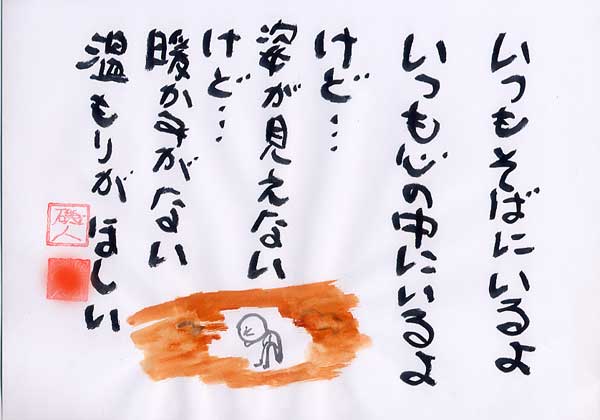 いつもそばにいるよ
いつも心の中にいるよ
けど…
姿が見えない
けど…
暖かみがない
温もりがほしい